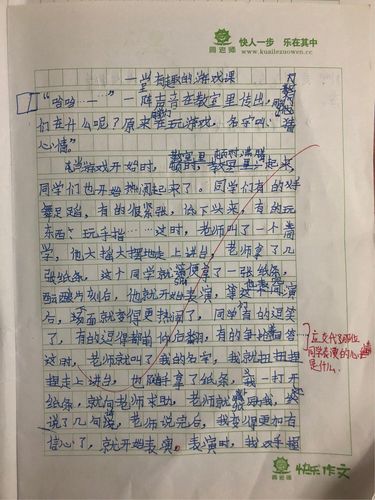 快人一步 乐在其中
www.kuailezuowen.cc
一堂有趣的游戏课
“哈哈……”一阵声音在教室里传出,
们在什么呢?原来在玩游戏,名字叫“猜
心情”
当游戏开始时,教室里顿时沸腾起来,
同学们也开始热闹起来了。同学们有的手
舞足蹈,有的很紧张,低下头来,有的玩
东西、玩手指……这时,老师叫了一个同
学,他大摇大摆地走上讲台,老师拿了几
张纸条,这个同学就随便拿了一张纸条,
酝酿片刻后,他就开始表演,等这个同学演
后,场面就变得更热闹了,同学们有的逗笑
了,有的逗得都前仰后翻,有的争抢着回答
这时,老师就叫了我的名字,我就扭扭捏
捏走上讲台,也随手拿了纸条,我一打开
纸条,就向老师求助,老师就
说了几句
老师说完后,我变得更加有
信心了,就开始表演。表演时,我双手握
应交代了那位
同学表演的心
是什么。
快乐作文